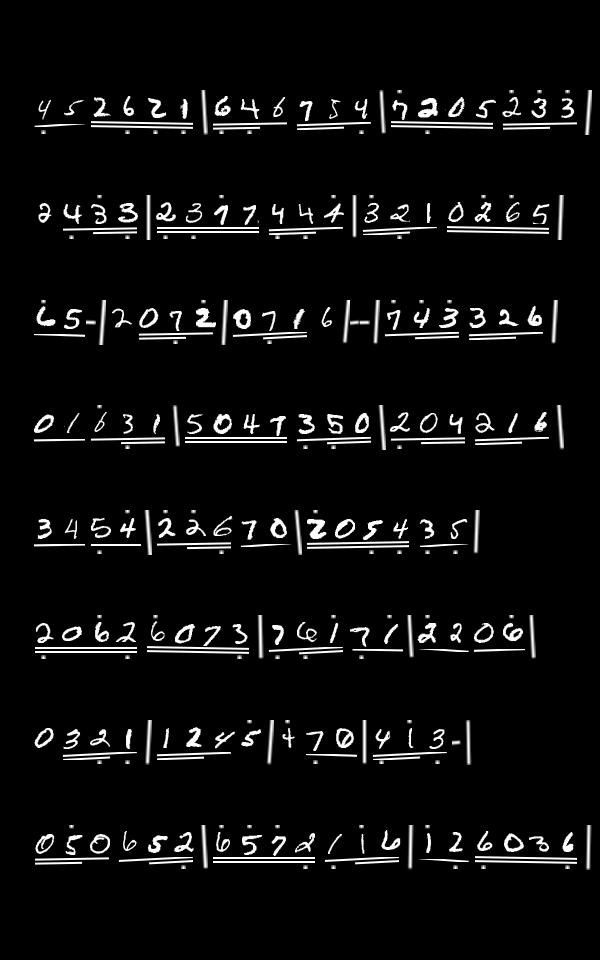 4 5 2 6 2 1 | 6 4 6 7 5 4 | 7 2 0 5 2 3 3 |
2 4 3 3 | 2 3 7 7 4 4 4 | 3 2 1 0 2 6 5 |
6 5 - | 2 0 7 2 | 0 7 1 6 | - - | 7 4 3 3 2 6 |
0 1 6 3 1 | 5 0 4 7 3 5 0 | 2 0 4 2 1 6 |
3 4 5 4 | 2 2 6 7 0 | 2 0 5 4 3 5 |
2 0 6 2 6 0 7 3 | 7 6 1 7 1 | 2 2 0 6 |
0 3 2 1 | 1 2 4 5 | 4 7 0 | 4 1 3 - |
0 5 0 6 5 2 | 6 5 7 2 1 1 6 | 1 2 6 0 3 6 |